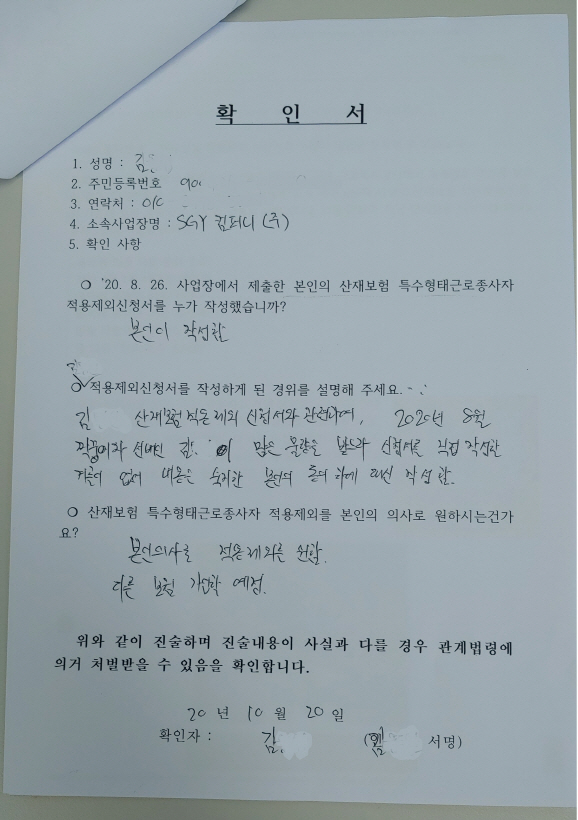 확 인 서
1. 성명 : 김
2. 주민등록번호 90
3. 연락처 : 010
4. 소속사업장명 : SGY 컴퍼니 (주)
5. 확인 사항
○ '20. 8. 26. 사업장에서 제출한 본인의 산재보험 특수형태근로종사자
적용제외신청서를 누가 작성했습니까?
본인이 작성함
○ 적용제외신청서를 작성하게 된 경위를 설명해 주세요.
김 산재보험 적용제외 신청서와 관련하여, 2020년 8월
김 이 많은 물량을 신청서를 직접 작성한
없어 내용은 숙지한 본인의 동의 하에 대신 작성함.
○ 산재보험 특수형태근로종사자 적용제외를 본인의 의사로 원하시는건가
요?
본인의사로 적용제외를 원함.
다른 보험 가입할 예정.
위와 같이 진술하며 진술내용이 사실과 다를 경우 관계법령에
의거 처벌받을 수 있음을 확인합니다.
20 년 10 월 20 일
확인자 : 김 ( 서명)